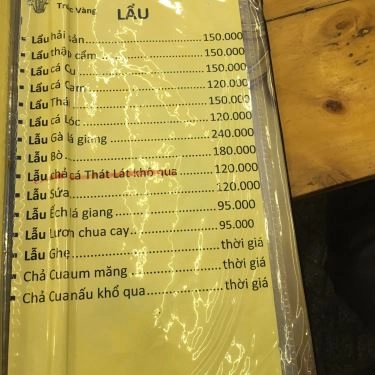 Trúc Vàng
LẨU
Lẩu hải sản 150.000
Lẩu thập cẩm 150.000
Lẩu cá Cu 150.000
Lẩu cá Cam 120.000
Lẩu Thái 150.000
Lẩu cá Lóc 120.000
Lẩu Gà lá giang 240.000
Lẩu Bò 180.000
Lẩu chả cá Thát Lát khổ qua 120.000
Lẩu Sứa 120.000
Lẩu Ếch lá giang 95.000
Lẩu Lươn chua cay 95.000
Lẩu Ghẹ thời giá
Chả Cuaum măng thời giá
Chả Cuanấu khổ qua thời giá